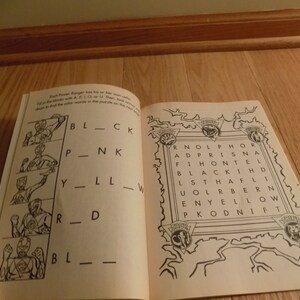 Each Power Ranger has his or her own color.
Fill in the blanks with A, E, I, O, or U. Then
to find the color words in the puzzle on the
BL_CK
P_NK
Y_LL_W
R_D
BL_ _
R N O L P H O R
A D P R I S N A
F L H O N T E
B L A C K I H D
L S T H A F L
U O L R B E R N
E N Y E L L O W
P K O D N I F